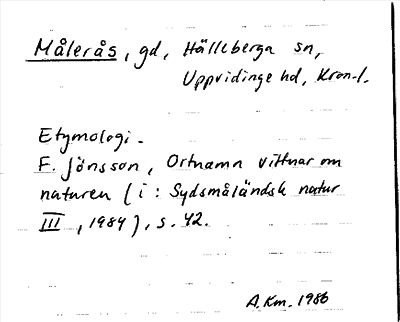 Målerås, gd, Hälleberga sn,
Uppvidinge hd, Kron. l.
Etymologi.
F. Jönsson, Ortnamn vittnar om
naturen (i: Sydsmåländsk natur
III, 1984), s. 42.
A. Km. 1986